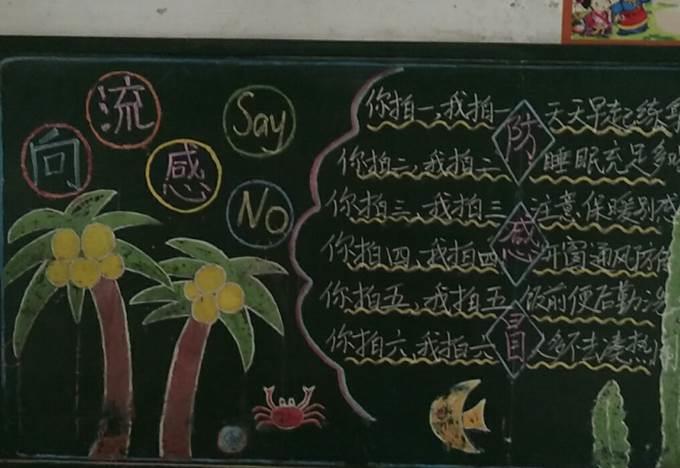 向流感
Say No
防感冒
你拍一、我拍一 天天早起练
你拍二、我拍二 睡眠充足多
你拍三、我拍三 注意保暖别感
你拍四、我拍四 开窗通风防
你拍五、我拍五 饭前便后勤
你拍六、我拍六 人多不去凑热